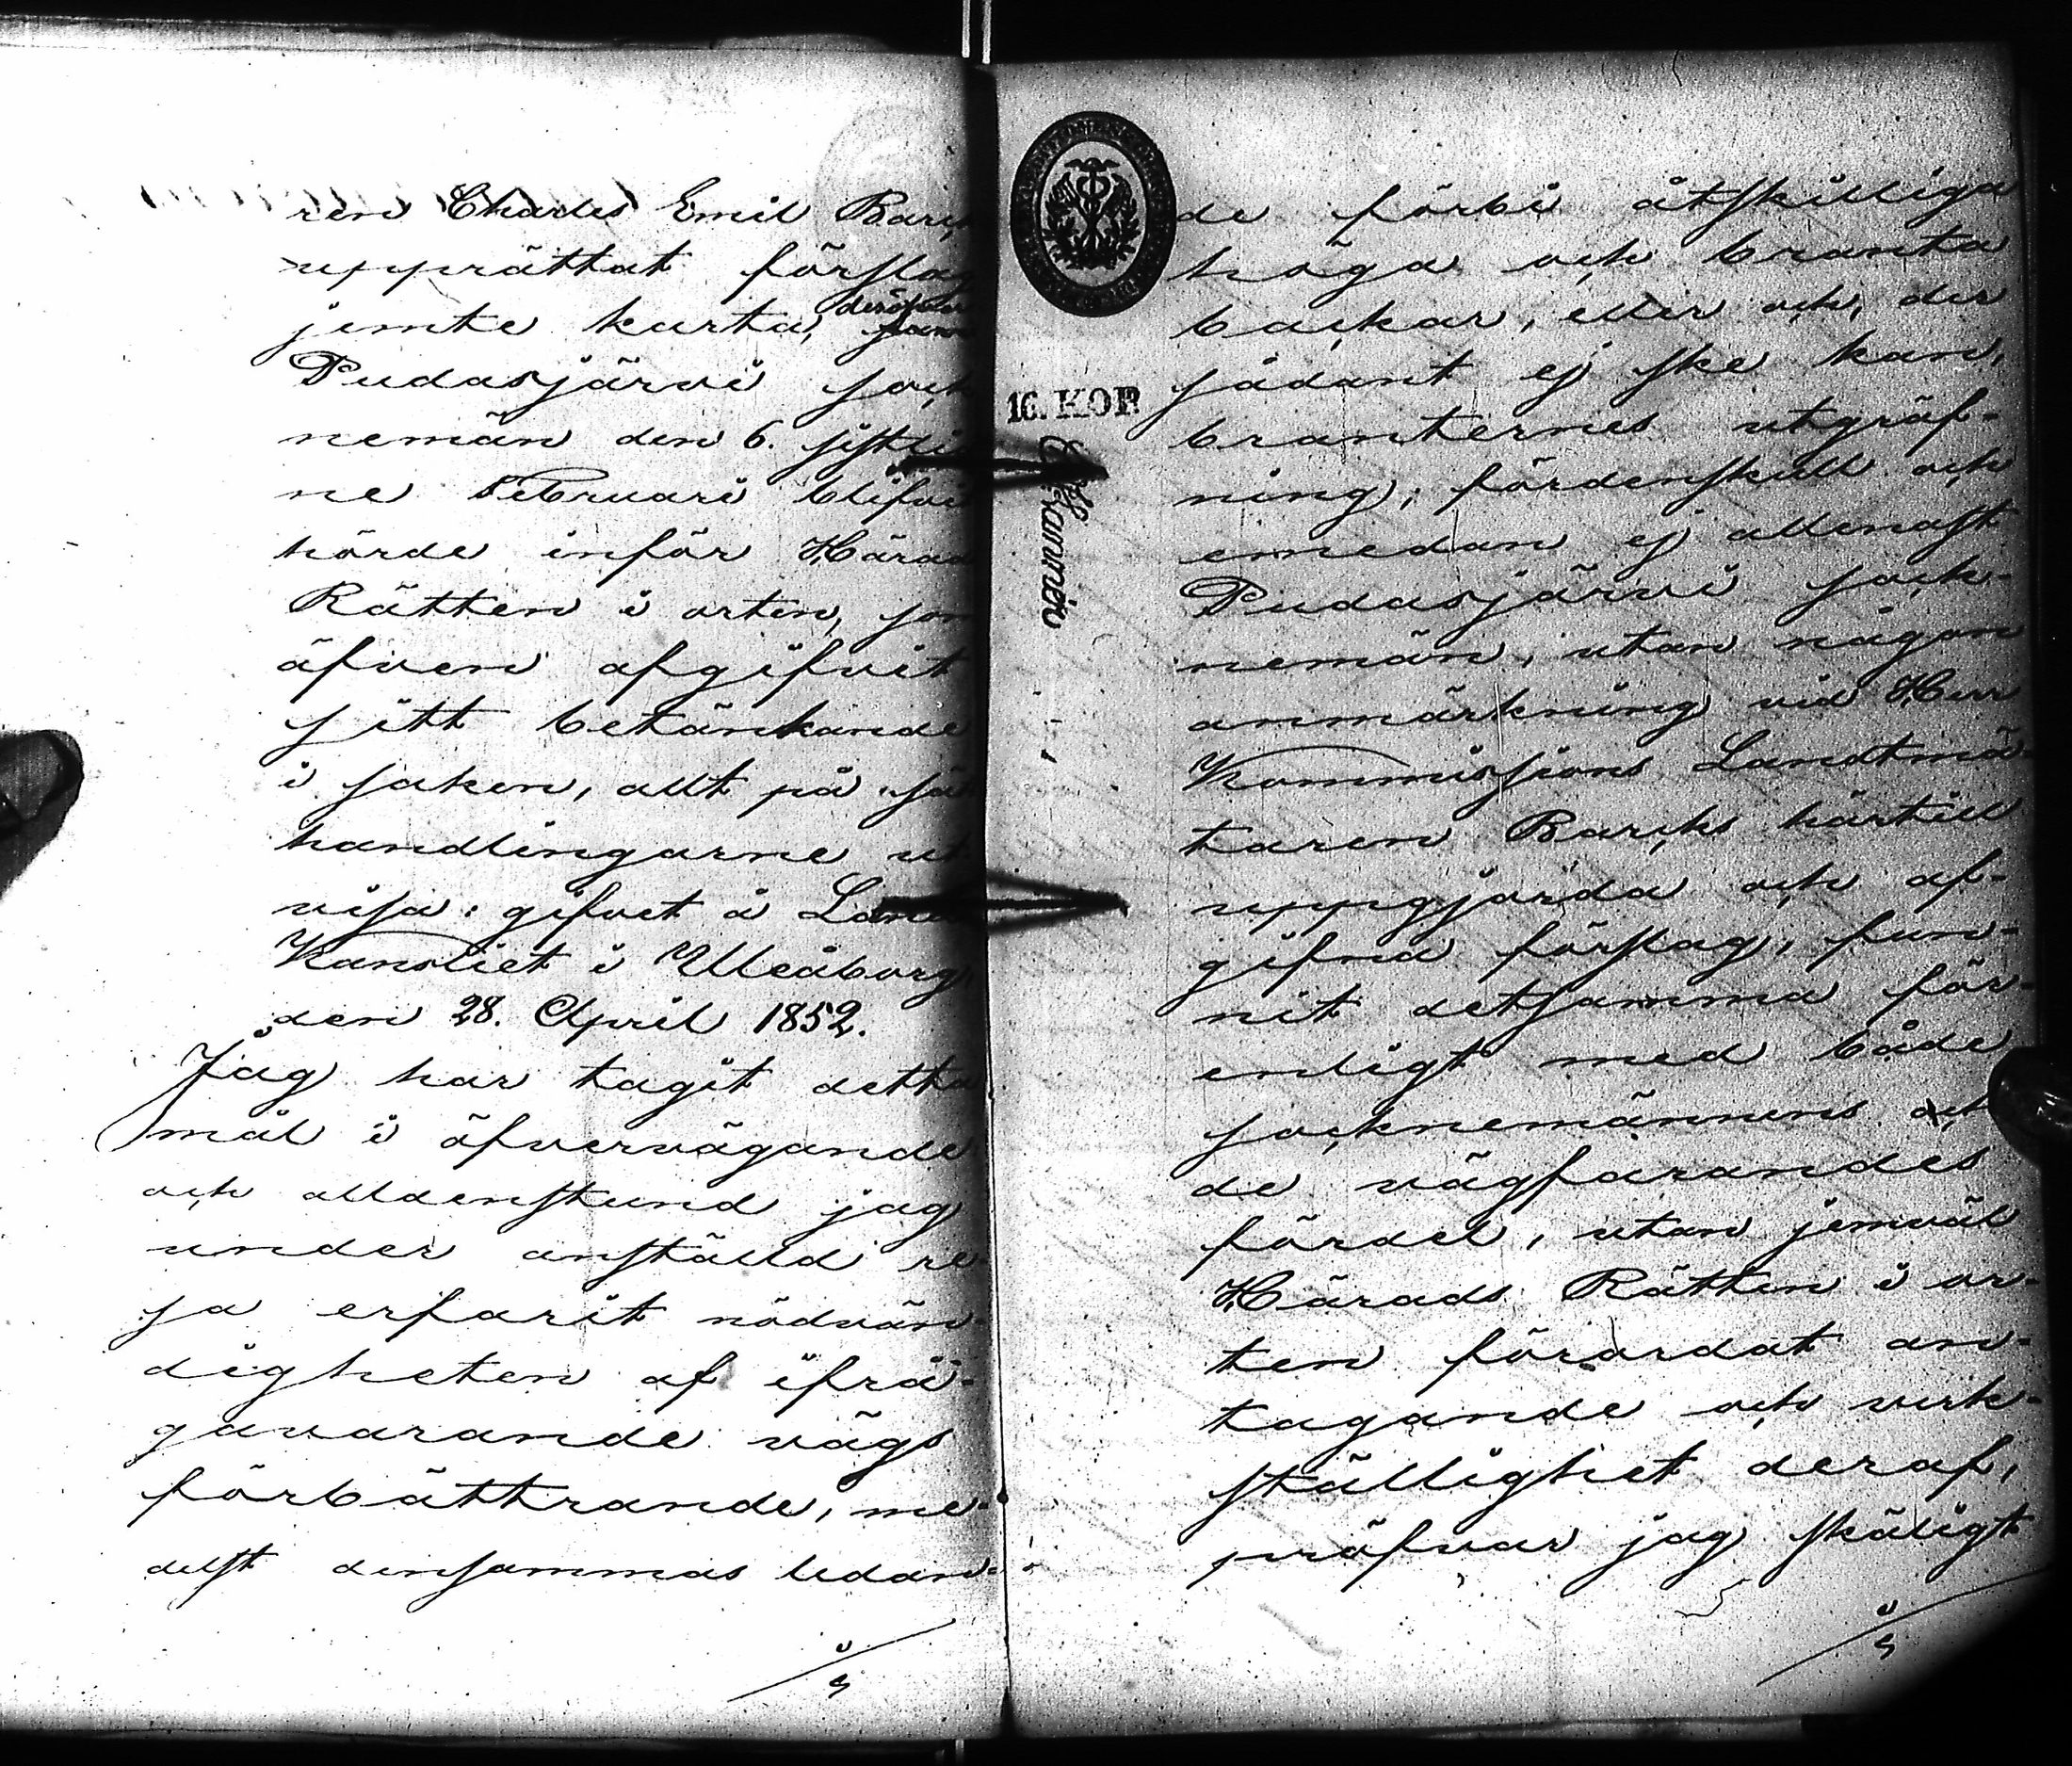 ren Charles Emil Barck
upprättat förslag
jemte karta, deröfver
Pudasjärvi sock
nemän den 6. sistlid
ne Februari blifvit
hörde inför Härads
Rätten i orten, som
äfven afgifvit
sitt betänkande
i saken, allt på sät
handlingarne ut
visa: gifvet å Lands
Kansliet i Uleåborg,
den 28. April 1852.
Jag har tagit detta
mål i öfvervägande
och alldenstund jag
under anstäld re
sa erfarit nödvän-
digheten af ifrå-
gavarande vägs
förbättrande, me-
delst densammas ledan-
de förbi åtskilliga
höga och branta
backar, eller och, der
sådant ej ske kan,
branternes utgräf-
ning; fördenskull och
emedan ej allenast
Pudasjärvi sock-
nemän, utan någon
anmärkning vid Herr
Kommissions Landtmä-
taren Barcks härtill
uppgjorda och af-
gifna förslag, fun-
nit detsamma för-
enligt med både
socknemännens och
de vägfarandes
fördel, utan jemväl
Härads Rätten i or-
ten förordat an-
tagande och verk-
ställighet deraf,
pröfvar jag skäligt
16. KOP.